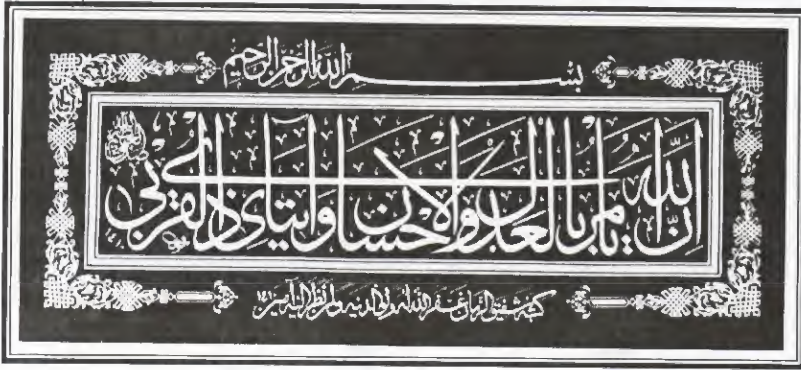 بسم الله الرحمن الرحيم
إن الله يأمر بالعدل والإحسان وإيتاء ذي القربى
كتبه شفيق الزمان غفر الله له ولوالديه ولمن نظر إليه آمين